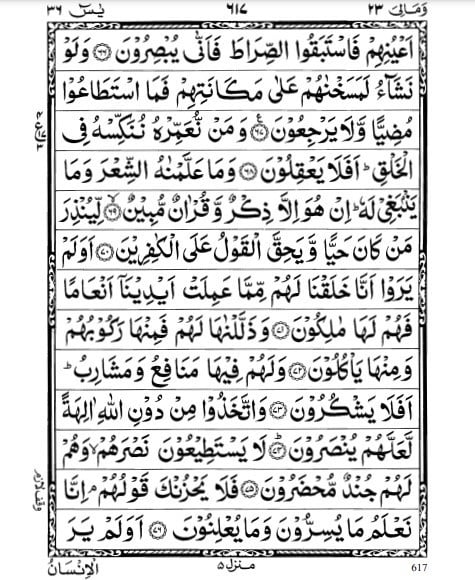 وَمَالِيَ ٢٣ ٦١٧ يٰسٓ ٣٦
اَعْيُنِهِمْ فَاسْتَبَقُوا الصِّرَاطَ فَاَنّٰى يُبْصِرُوْنَ ﴿٦٦﴾ وَلَوْ
نَشَآءُ لَمَسَخْنٰهُمْ عَلٰى مَكَانَتِهِمْ فَمَا اسْتَطَاعُوْا
مُضِيًّا وَّلَا يَرْجِعُوْنَ ﴿٦٧﴾ وَمَنْ نُّعَمِّرْهُ نُنَكِّسْهُ فِى
الْخَلْقِ ؕ اَفَلَا يَعْقِلُوْنَ ﴿٦٨﴾ وَمَا عَلَّمْنٰهُ الشِّعْرَ وَمَا
يَنْۢبَغِىْ لَهٗ ؕ اِنْ هُوَ اِلَّا ذِكْرٌ وَّقُرْاٰنٌ مُّبِيْنٌ ﴿٦٩﴾ لِّيُنْذِرَ
مَنْ كَانَ حَيًّا وَّيَحِقَّ الْقَوْلُ عَلَى الْكٰفِرِيْنَ ﴿٧٠﴾ اَوَلَمْ
يَرَوْا اَنَّا خَلَقْنَا لَهُمْ مِّمَّا عَمِلَتْ اَيْدِيْنَاۤ اَنْعَامًا
فَهُمْ لَهَا مٰلِكُوْنَ ﴿٧١﴾ وَذَلَّلْنٰهَا لَهُمْ فَمِنْهَا رَكُوْبُهُمْ
وَمِنْهَا يَاْكُلُوْنَ ﴿٧٢﴾ وَلَهُمْ فِيْهَا مَنَافِعُ وَمَشَارِبُ ؕ
اَفَلَا يَشْكُرُوْنَ ﴿٧٣﴾ وَاتَّخَذُوْا مِنْ دُوْنِ اللّٰهِ اٰلِهَةً
لَّعَلَّهُمْ يُنْصَرُوْنَ ﴿٧٤﴾ لَا يَسْتَطِيْعُوْنَ نَصْرَهُمْ ۙ وَهُمْ
لَهُمْ جُنْدٌ مُّحْضَرُوْنَ ﴿٧٥﴾ فَلَا يَحْزُنْكَ قَوْلُهُمْ ۘ اِنَّا
نَعْلَمُ مَا يُسِرُّوْنَ وَمَا يُعْلِنُوْنَ ﴿٧٦﴾ اَوَلَمْ يَرَ
وقف لازم
الْاِنْسَانُ منزل ٥ 617